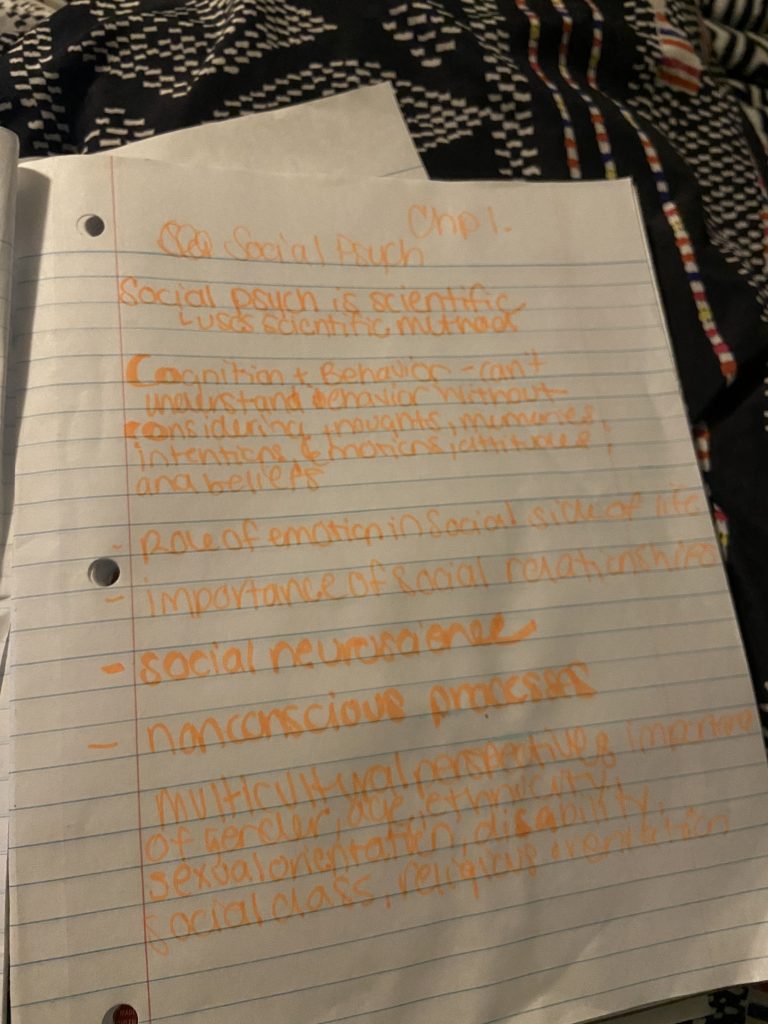 Chp 1.
Social Psych
Social psych is scientific
↳ uses scientific methods
Cognition + Behavior - can't
understand behavior without
considering thoughts, memories,
intentions, emotions, attitudes,
and beliefs
- Role of emotion in social side of life
- importance of social relationships
- social neuroscience
- nonconscious processes
multicultural perspective &
of gender, age, ethnicity,
sexual orientation, disability,
social class, religious orientation